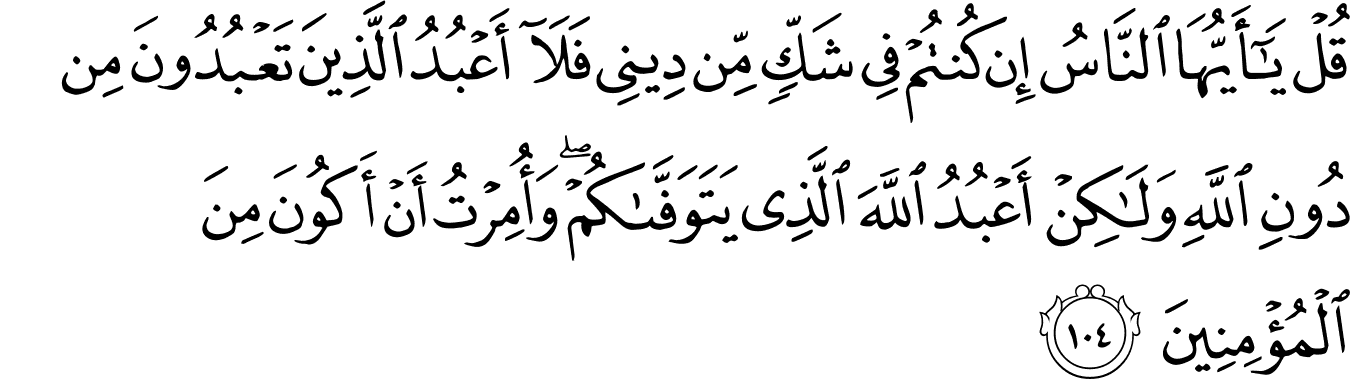 قُلْ يَـٰٓأَيُّهَا ٱلنَّاسُ إِن كُنتُمْ فِى شَكٍّ مِّن دِينِى فَلَآ أَعْبُدُ ٱلَّذِينَ تَعْبُدُونَ مِن
دُونِ ٱللَّهِ وَلَـٰكِنْ أَعْبُدُ ٱللَّهَ ٱلَّذِى يَتَوَفَّىٰكُمْ ۖ وَأُمِرْتُ أَنْ أَكُونَ مِنَ
ٱلْمُؤْمِنِينَ ١٠٤